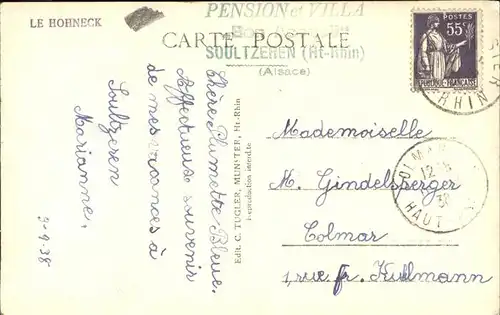 LE HOHNECK
PENSION et VILLA
CARTE POSTALE
SOULTZEREN (Ht-Rhin)
(Alsace)
POSTES
55c
RHIN
Chère Plumette Bleue.
Affectueux souvenir
de mes vacances à
Soultzeren
Marianne.
2-9-38
Edit. C. TUGLER, MUNSTER, Ht-Rhin
Reproduction interdite
Mademoiselle
M. Gindelsperger
Colmar
1, rue Fr. Kullmann
12
38
HAUT